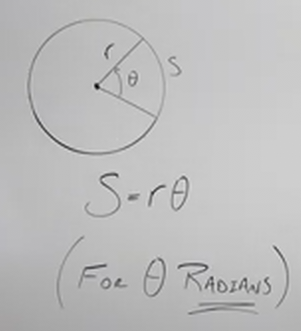 r
θ
S
S = rθ
(FOR θ RADIANS)